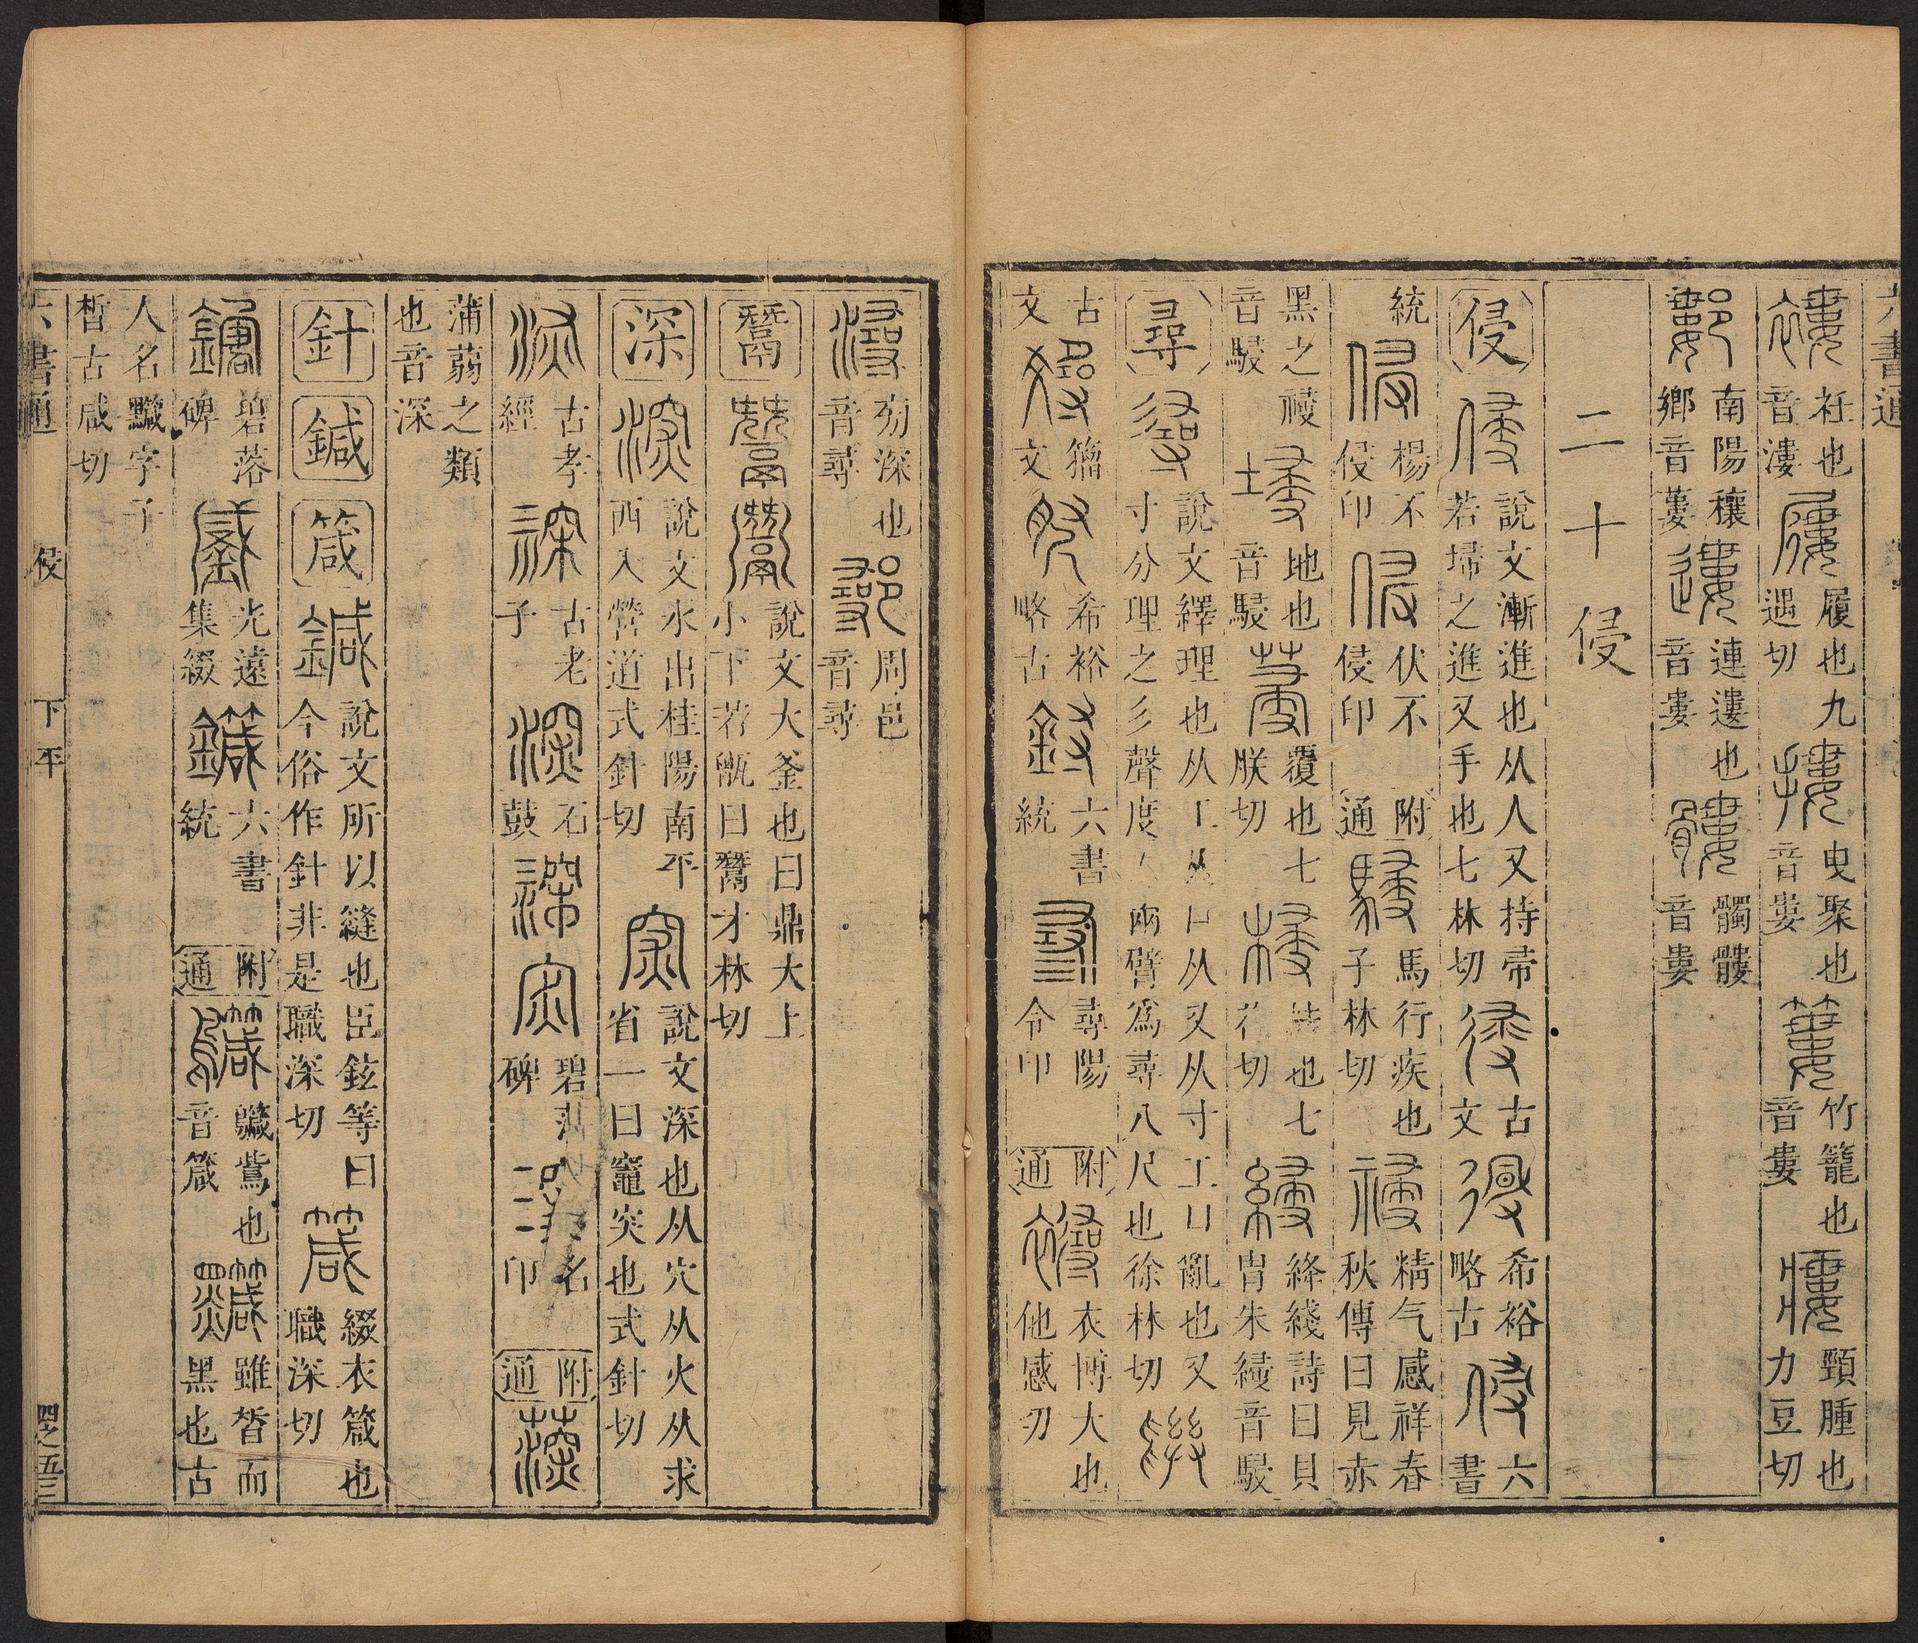 六書通
衽也音漊 履也九遇切 曳聚也音婁 竹籠也音婁 頸腫也力豆切
南陽穰鄉音蔞 連遱也音婁 髑髏音婁
二十侵
侵 說文漸進也从人又持帚若埽之進又手也七林切 古文 希裕略古 六書
統 楊不侵印 伏不侵印 附通 馬行疾也子林切 精气感祥春秋傳曰見赤
黑之祲音駸 地也音駸 覆也七朕切 也七切 絳綫詩曰貝冑朱綅音駸
尋 說文繹理也从工从口从又从寸工口亂也又寸分理之彡聲度人兩臂爲尋八尺也徐林切
古文 籀文 希裕略古 六書統 尋陽令印 附通 衣博大也他感切
㓨深也音尋 周邑音尋
鬵 說文大釜也曰鼎大上小下若甑曰鬵才林切
深 說文水出桂陽南平西入營道式針切 說文深也从穴从火从求省一曰竈突也式針切
古孝經 古老子 石鼓 碧落碑 名印 附通
蒲蒻之類也音深
針 鍼 箴 說文所以縫也臣鉉等曰今俗作針非是職深切 綴衣箴也職深切
碧落碑 光遠集綴 六書統 附通 鱵鴜也音箴 雖晳而黑也古
人名黬字子晳古咸切
六書通 侵 下平 四之五三